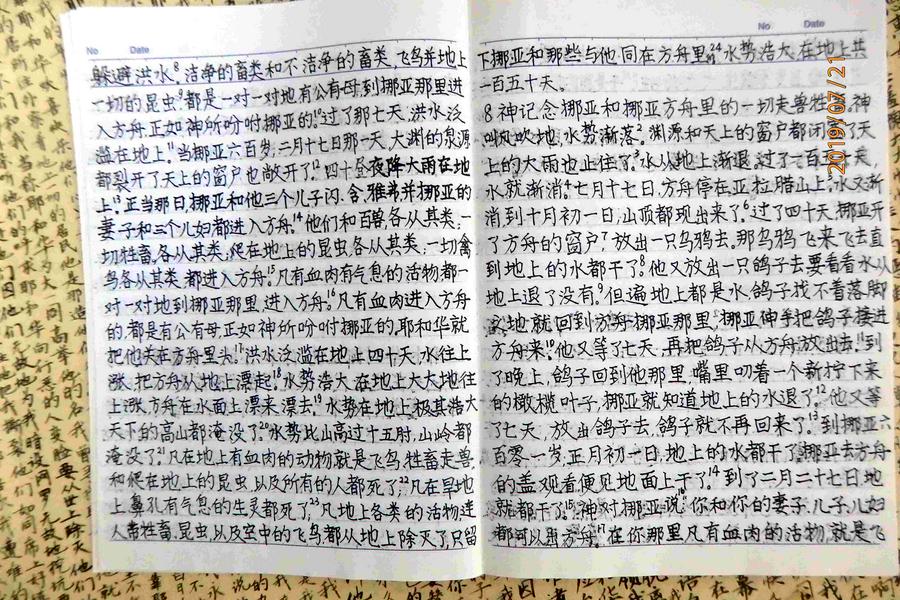 No Date
躲避洪水。8洁净的畜类和不洁净的畜类,飞鸟并地上
一切的昆虫9都是一对一对地有公有母,到挪亚那里进
入方舟,正如神所吩咐挪亚的。10过了那七天,洪水泛
滥在地上。11当挪亚六百岁,二月十七日那一天,大渊的泉源
都裂开了,天上的窗户也敞开了。12四十昼夜降大雨在地
上。13正当那日,挪亚和他三个儿子闪、含、雅弗,并挪亚的
妻子和三个儿妇都进入方舟。14他们和百兽,各从其类;一
切牲畜,各从其类;爬在地上的昆虫,各从其类;一切禽
鸟各从其类,都进入方舟。15凡有血肉有气息的活物,都一
对一对地到挪亚那里,进入方舟。16凡有血肉进入方舟
的,都是有公有母,正如神所吩咐挪亚的,耶和华就
把他关在方舟里头。17洪水泛滥在地上四十天,水往上
涨,把方舟从地上漂起。18水势浩大,在地上大大地往
上涨,方舟在水面上漂来漂去。19水势在地上极其浩大,
天下的高山都淹没了。20水势比山高过十五肘,山岭都
淹没了。21凡在地上有血肉的动物,就是飞鸟、牲畜、走兽,
和爬在地上的昆虫,以及所有的人都死了。22凡在旱地
上,鼻孔有气息的生灵都死了。23凡地上各类的活物,连
人带牲畜、昆虫,以及空中的飞鸟,都从地上除灭了,只留
No Date
下挪亚和那些与他同在方舟里的。24水势浩大,在地上共
一百五十天。
8 神记念挪亚和挪亚方舟里的一切走兽牲畜,神
叫风吹地,水势渐落。2渊源和天上的窗户都闭塞了,天
上的大雨也止住了。3水从地上渐退,过了一百五十天,
水就渐消。4七月十七日,方舟停在亚拉腊山上。5水又渐
消,到十月初一日,山顶都现出来了。6过了四十天,挪亚开
了方舟的窗户,7放出一只乌鸦去,那乌鸦飞来飞去,直
到地上的水都干了。8他又放出一只鸽子去,要看看水从
地上退了没有。9但遍地上都是水,鸽子找不着落脚
之地,就回到方舟挪亚那里,挪亚伸手把鸽子接进
方舟来。10他又等了七天,再把鸽子从方舟放出去。11到
了晚上,鸽子回到他那里,嘴里叼着一个新拧下来
的橄榄叶子,挪亚就知道地上的水退了。12他又等
了七天,放出鸽子去,鸽子就不再回来了。13到挪亚六
百零一岁,正月初一日,地上的水都干了。挪亚去方舟
的盖观看,便见地面上干了。14到了二月二十七日,地
就都干了。15神对挪亚说:16你和你的妻子、儿子、儿妇
都可以出方舟。17在你那里凡有血肉的活物,就是飞
2019/07/21